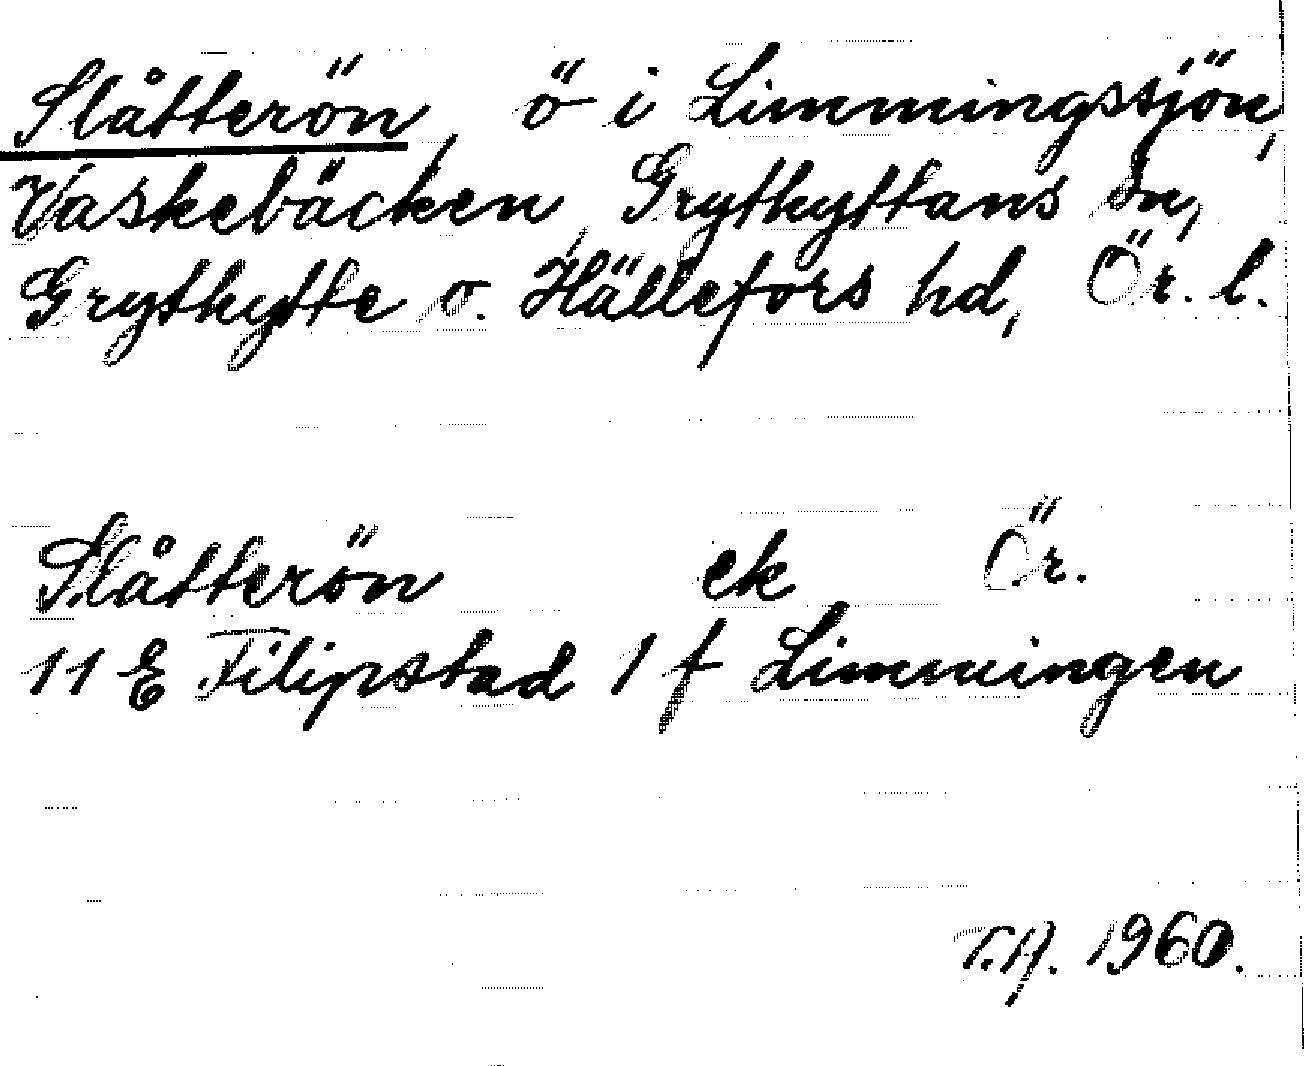 Slåtterön, ö i Limmingssjön,
Vaskebäcken, Grythyttans sn,
Grythytte o. Hällefors hd, Ör. l.
Slåtterön ek Ör.
11 E Filipstad 1 f Limmingen
T.A. 1960.